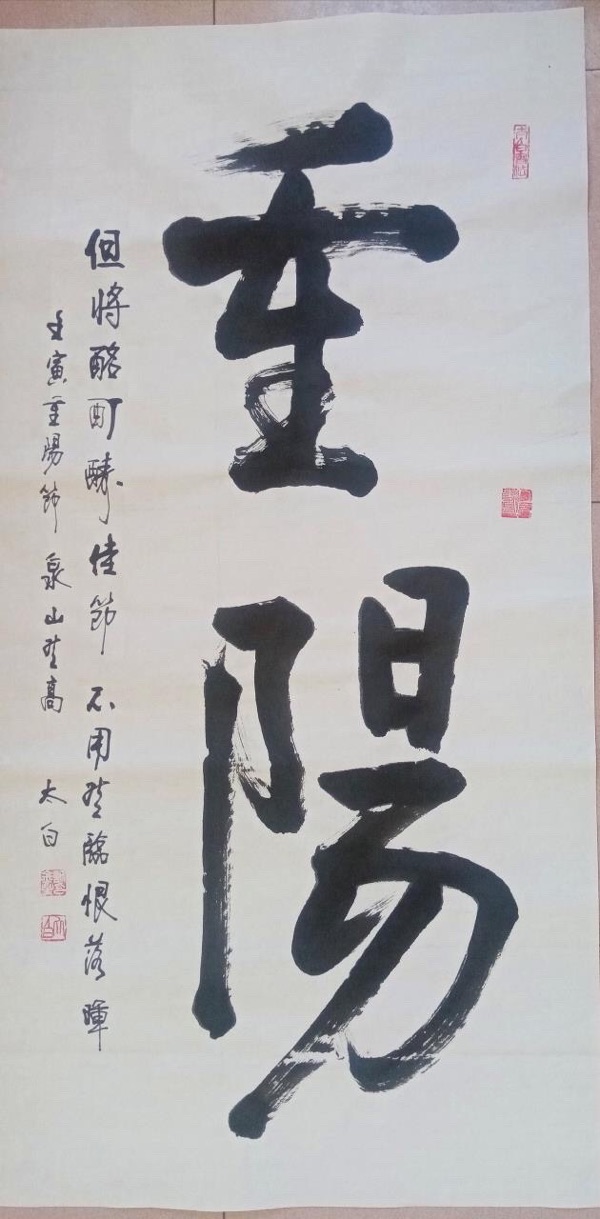 重陽
但將酩酊酬佳節 不用登臨恨落暉
壬寅重陽節 泉山登高 太白